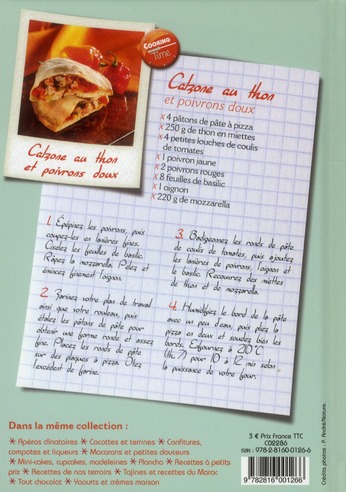 COOKING
Time
Calzone au thon
et poivrons doux
Calzone au thon
et poivrons doux
x 4 pâtons de pâte à pizza
x 250 g de thon en miettes
x 4 petites louches de coulis
de tomates
x 1 poivron jaune
x 2 poivrons rouges
x 8 feuilles de basilic
x 1 oignon
x 220 g de mozzarella
1. Épépinez les poivrons, puis
coupez-les en lanières fines.
Ciselez les feuilles de basilic.
Râpez la mozzarella. Pelez et
émincez finement l'oignon.
2. Farinez votre plan de travail
ainsi que votre rouleau, puis
étalez les pâtons de pâte pour
obtenir une forme ronde et assez
fine. Placez les ronds de pâte
sur des plaques à pizza. Ôtez
l'excédent de farine.
3. Badigeonnez les ronds de pâte
de coulis de tomates, puis ajoutez
les lanières de poivrons, l'oignon et
le basilic. Recouvrez des miettes
de thon et de mozzarella.
4. Humidifiez le bord de la pâte
avec un peu d'eau, puis pliez la
pizza en deux et soudez bien les
bords. Enfournez à 210°C
(th.7) pour 10 à 12 min selon
la puissance de votre four.
Dans la même collection :
* Apéros dînatoires * Cocottes et terrines * Confitures,
compotes et liqueurs * Macarons et petites douceurs
* Mini-cakes, cupcakes, madeleines * Plancha * Recettes à petits
prix * Recettes de nos terroirs * Tajines et recettes du Maroc
* Tout chocolat * Yaourts et crèmes maison
3 € Prix France TTC
C02286
ISBN : 978-2-8160-0126-6
9 782816 001266
Crédits photos : P. André/Nature.